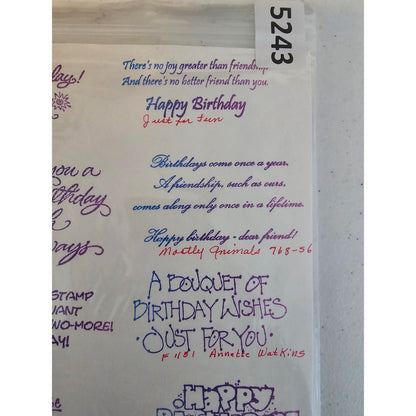 5243
There's no joy greater than friendship
And there's no better friend than you.
Happy Birthday
Just for Fun
Birthdays come once a year.
A friendship, such as ours,
comes along only once in a lifetime.
Happy birthday - dear friend!
Mostly Animals 768-56
A BOUQUET OF
BIRTHDAY WISHES
·JUST FOR YOU·
F 1181 Annette Watkins
Happy
day!
you a
ways
STAMP
WANT
NO-MORE!
AY!